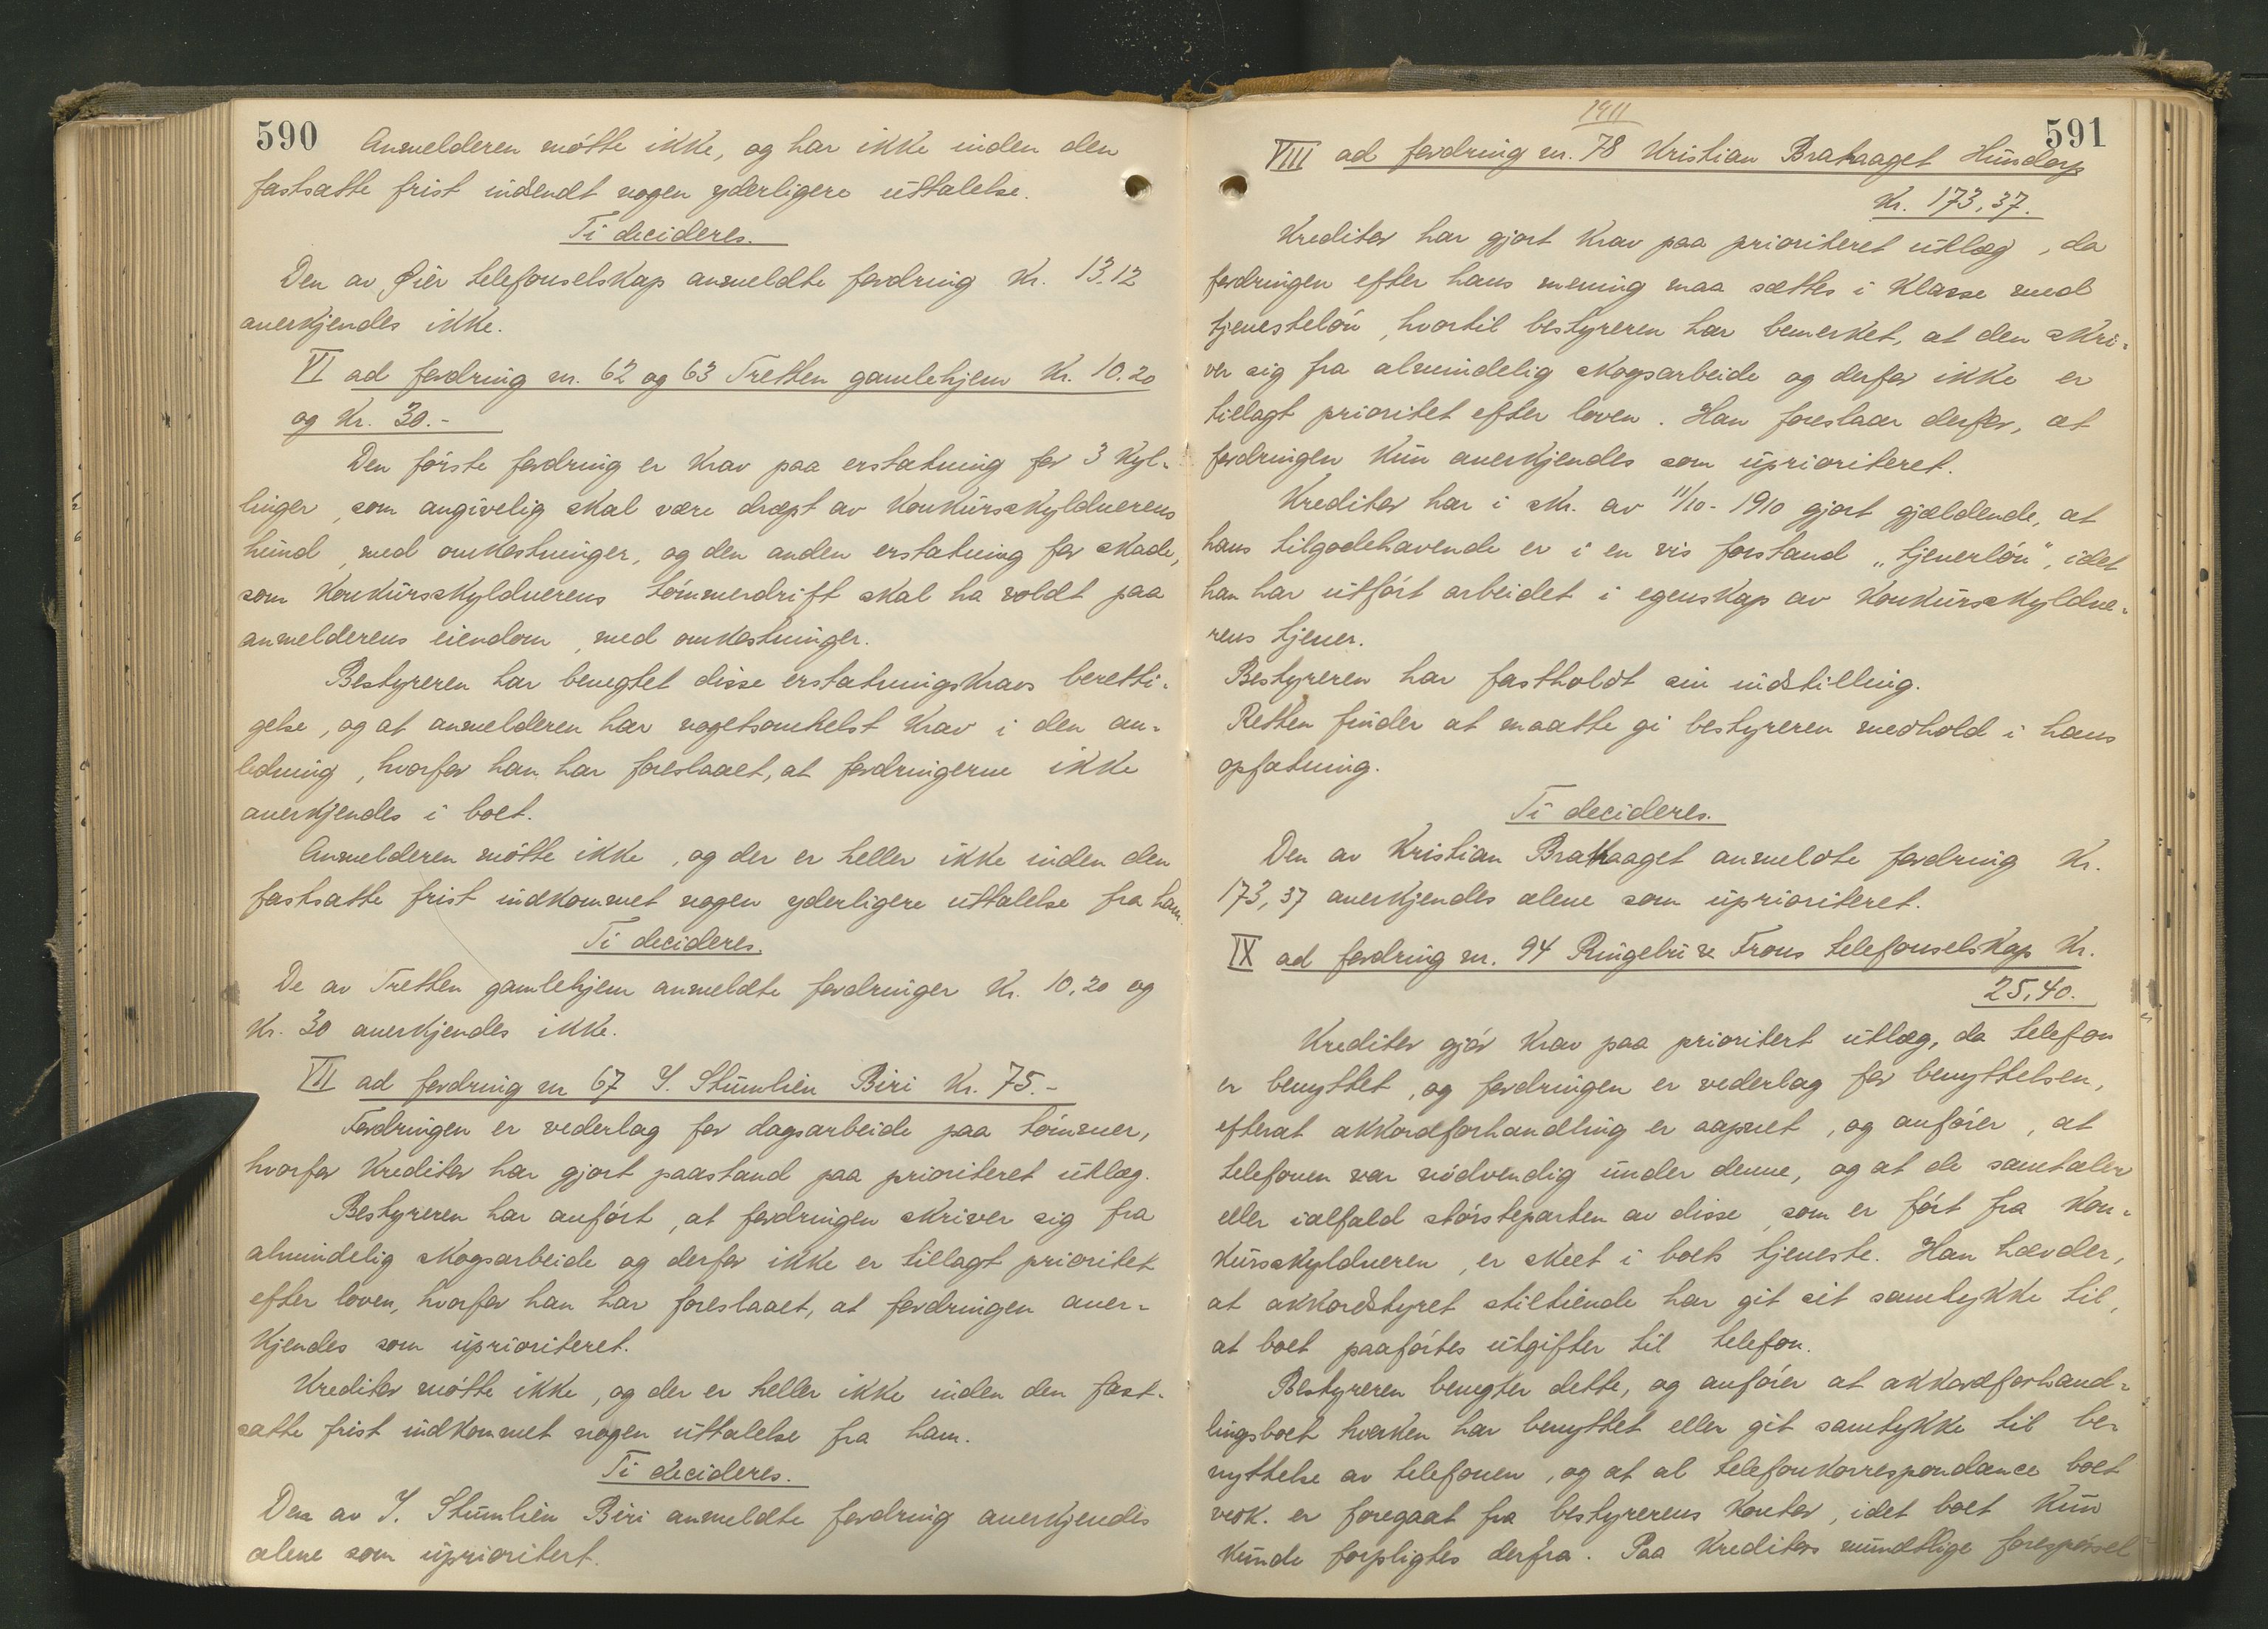 590
Anmelderen møtte ikke, og har ikke inden den
fastsatte frist indsendt nogen yderligere uttalelse.
Ti decideres.
Den av Øier telefonselskap anmeldte fordring Kr. 13.12
anerkjendes ikke.
VI ad fordring nr. 62 og 63 Tretten gamlehjem Kr. 10.20
og Kr. 30.-
Den første fordring er krav paa erstatning for 3 kyl-
linger, som angivelig skal være dræpt av konkursskyldnerens
hund, med omkostninger, og den anden erstatning for skade,
som konkursskyldnerens tømmerdrift skal ha voldt paa
anmelderens eiendom, med omkostninger.
Bestyreren har benegtet disse erstatningskravs beretti-
gelse, og at anmelderen har nogetsomhelst krav i den an-
ledning, hvorfor han har foreslaaet, at fordringerne ikke
anerkjendes i boet.
Anmelderen møtte ikke, og der er heller ikke inden den
fastsatte frist indkommet nogen yderligere uttalelse fra ham.
Ti decideres.
De av Tretten gamlehjem anmeldte fordringer Kr. 10,20 og
Kr. 30 anerkjendes ikke.
VII ad fordring nr 67 I. Stumlien Biri Kr. 75.-
Fordringen er vederlag for dagsarbeide paa tømmer,
hvorfor kreditor har gjort paastand paa prioriteret utlæg.
Bestyreren har anført, at fordringen skriver sig fra
almindelig skogsarbeide og derfor ikke er tillagt prioritet
efter loven, hvorfor han har foreslaaet, at fordringen aner-
kjendes som uprioriteret.
Kreditor møtte ikke, og der er heller ikke inden den fast-
satte frist indkommet nogen uttalelse fra ham.
Ti decideres.
Den av I. Stumlien Biri anmeldte fordring anerkjendes
alene som uprioritert.
1911
591
VIII ad fordring nr. 78 Kristian Brakaaget Hundorp
Kr. 173,37.
Kreditor har gjort krav paa prioriteret utlæg, da
fordringen efter hans mening maa sættes i klasse med
tjenesteløn, hvortil bestyreren har bemerket, at den skri-
ver sig fra almindelig skogsarbeide og derfor ikke er
tillagt prioritet efter loven. Han foreslaar derfor, at
fordringen kun anerkjendes som uprioriteret.
Kreditor har i skr. av 11/10-1910 gjort gjældende, at
hans tilgodehavende er i en vis forstand "tjenerløn", idet
han har utført arbeidet i egenskap av konkursskyldne-
rens tjener.
Bestyreren har fastholdt sin indstilling.
Retten finder at maatte gi bestyreren medhold i hans
opfatning.
Ti decideres.
Den av Kristian Brakaaget anmeldte fordring Kr.
173,37 anerkjendes alene som uprioriteret.
IX ad fordring nr. 94 Ringebu & Frons telefonselskap Kr.
25,40.
Kreditor gjør krav paa prioritert utlæg, da telefon
er benyttet, og fordringen er vederlag for benyttelsen,
efterat akkordforhandling er aapnet, og anfører, at
telefonen var nødvendig under denne, og at de samtaler
eller ialfald størsteparten av disse, som er ført fra kon-
kursskyldneren, er skeet i boets tjeneste. Han hævder,
at akkordstyret stiltiende har git sit samtykke til,
at boet paaførtes utgifter til telefon.
Bestyreren benegter dette, og anfører at akkordforhand-
lingsboet hverken har benyttet eller git samtykke til be-
nyttelse av telefonen, og at al telefonkorrespondance boet
vedk. er foregaat fra bestyrerens kontor, idet boet kun
kunde forpligtes derfra. Paa kreditors mundtlige forespørsel